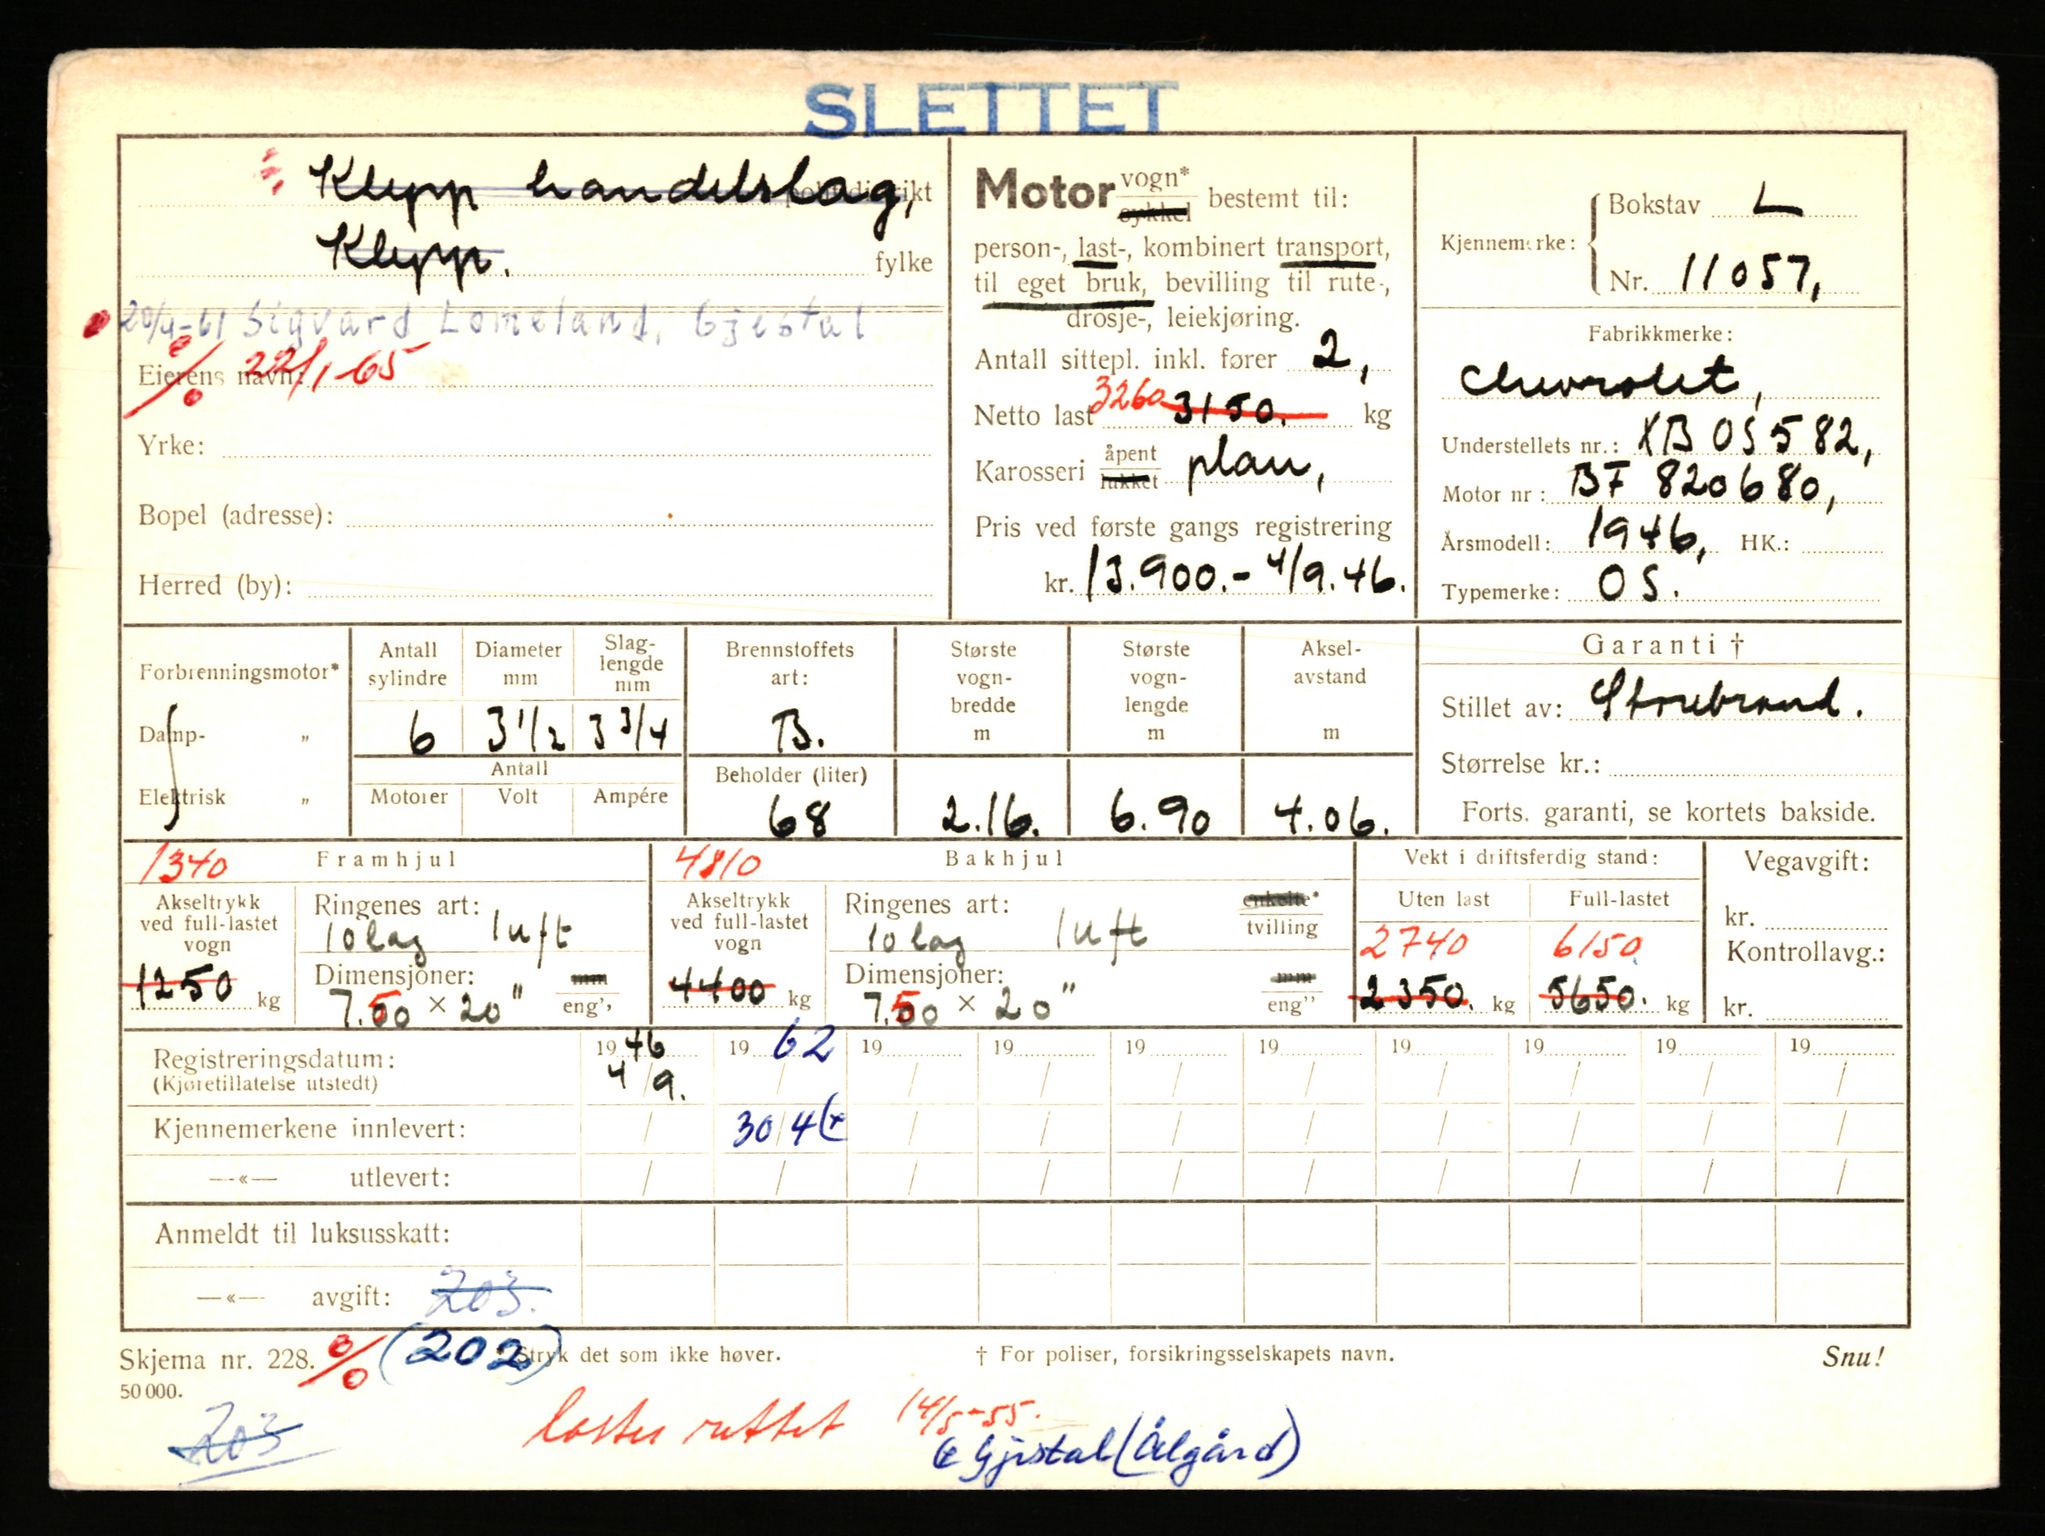 SLETTET
Klepp handelslag,
Klepp. fylke
20/4-61 Sigvard Lomeland, Gjestal
Eierens navn: 22/1-65
Yrke:
Bopel (adresse):
Herred (by):
Motor vogn* sykkel bestemt til:
person-, last-, kombinert transport,
til eget bruk, bevilling til rute-,
drosje-, leiekjøring.
Antall sittepl. inkl. fører 2,
Netto last 3260 3150. kg
Karosseri åpent lukket plan,
Pris ved første gangs registrering
kr. 13.900.- 4/9.46.
Kjennemerke: Bokstav L
Nr. 11057,
Fabrikkmerke:
Chevrolet,
Understellets nr.: XB OS 582,
Motor nr: BF 820680,
Årsmodell: 1946, HK.:
Typemerke: OS.
Forbrenningsmotor*
Damp- „
Elektrisk „
Antall sylindre 6
Diameter mm 3 1/2
Slag-lengde mm 3 3/4
Antall
Motorer Volt Ampére
Brennstoffets art: B.
Beholder (liter) 68
Største vogn-bredde m 2.16.
Største vogn-lengde m 6.90
Aksel-avstand m 4.06.
Garanti †
Stillet av: Storebrand.
Størrelse kr.:
Forts. garanti, se kortets bakside.
1340 Framhjul
Akseltrykk ved full-lastet vogn 1250 kg
Ringenes art: 10 lag luft
Dimensjoner: 7.50 × 20" mm eng",
4810 Bakhjul
Akseltrykk ved full-lastet vogn 4400 kg
Ringenes art: 10 lag luft enkelte* tvilling
Dimensjoner: 7.50 × 20" mm eng"
Vekt i driftsferdig stand:
Uten last 2740 2350. kg
Full-lastet 6150 5650. kg
Vegavgift:
kr.
Kontrollavg.:
kr.
Registreringsdatum: 19 46 19 62 19 19 19 19 19 19 19 19
(Kjøretillatelse utstedt) 4/9.
Kjennemerkene innlevert: 30/4
—«— utlevert:
Anmeldt til luksusskatt:
—«— avgift: 203.
Skjema nr. 228. % (202) Stryk det som ikke høver. † For poliser, forsikringsselskapets navn. Snu!
50 000.
203
lasten rettet 14/5-55.
Gjestal (Ålgård)